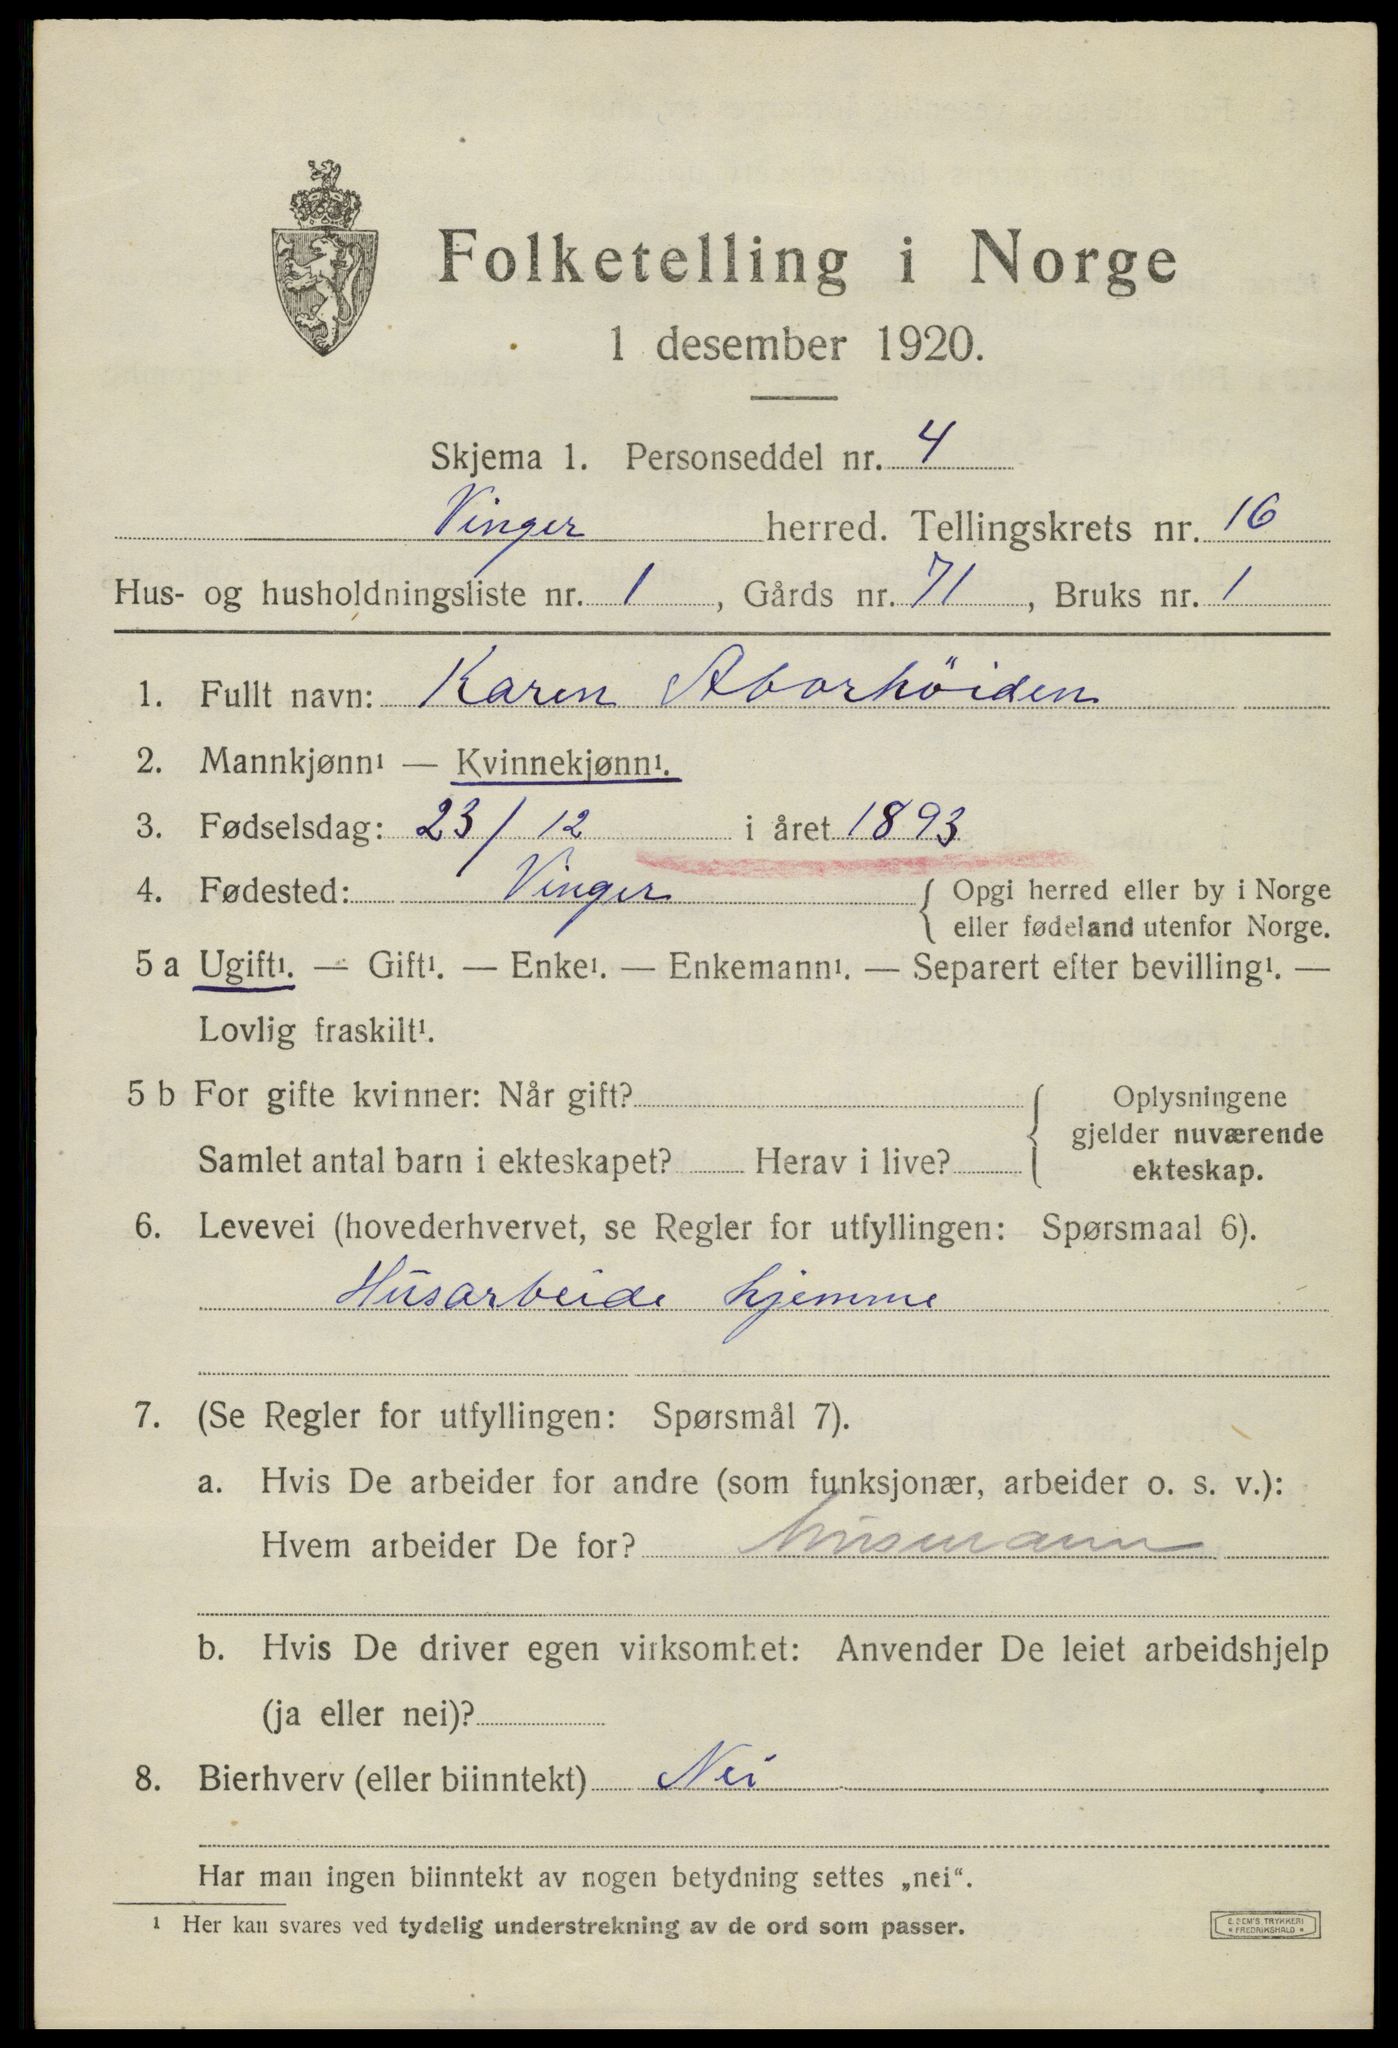 Folketelling i Norge
1 desember 1920.
Skjema 1. Personseddel nr. 4
Vinger herred. Tellingskrets nr. 16
Hus- og husholdningsliste nr. 1, Gårds nr. 71, Bruks nr. 1
1. Fullt navn: Karen Aborhöiden
2. Mannkjønn¹ — Kvinnekjønn¹.
3. Fødselsdag: 23/12 i året 1893
4. Fødested: Vinger { Opgi herred eller by i Norge
eller fødeland utenfor Norge.
5 a Ugift¹. — Gift¹. — Enke¹. — Enkemann¹. — Separert efter bevilling¹. —
Lovlig fraskilt¹.
5 b For gifte kvinner: Når gift?
Samlet antal barn i ekteskapet? Herav i live?
{ Oplysningene
gjelder nuværende
ekteskap.
6. Levevei (hovederhvervet, se Regler for utfyllingen: Spørsmaal 6).
Husarbeide hjemme
7. (Se Regler for utfyllingen: Spørsmål 7).
a. Hvis De arbeider for andre (som funksjonær, arbeider o. s. v.):
Hvem arbeider De for?
b. Hvis De driver egen virksomhet: Anvender De leiet arbeidshjelp
(ja eller nei)?
8. Bierhverv (eller biinntekt) Nei
Har man ingen biinntekt av nogen betydning settes „nei“.
¹ Her kan svares ved tydelig understrekning av de ord som passer.
E. SEM'S TRYKKERI
* FREDRIKSHALD *